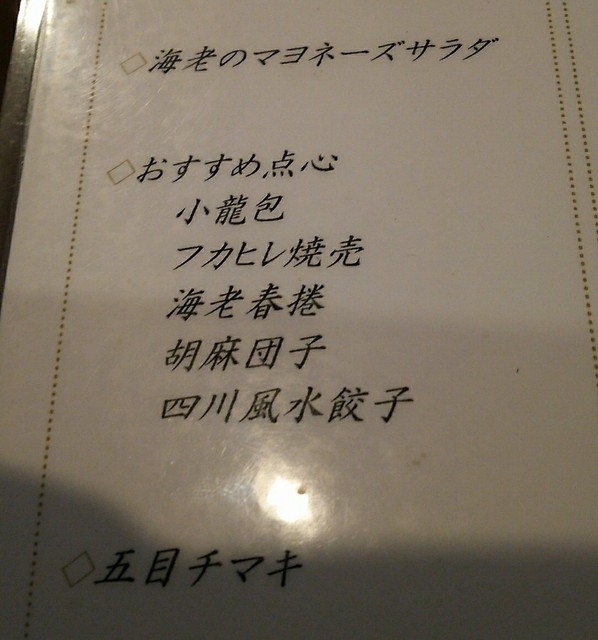 ◇海老のマヨネーズサラダ
◇おすすめ点心
小龍包
フカヒレ焼売
海老春捲
胡麻団子
四川風水餃子
◇五目チマキ